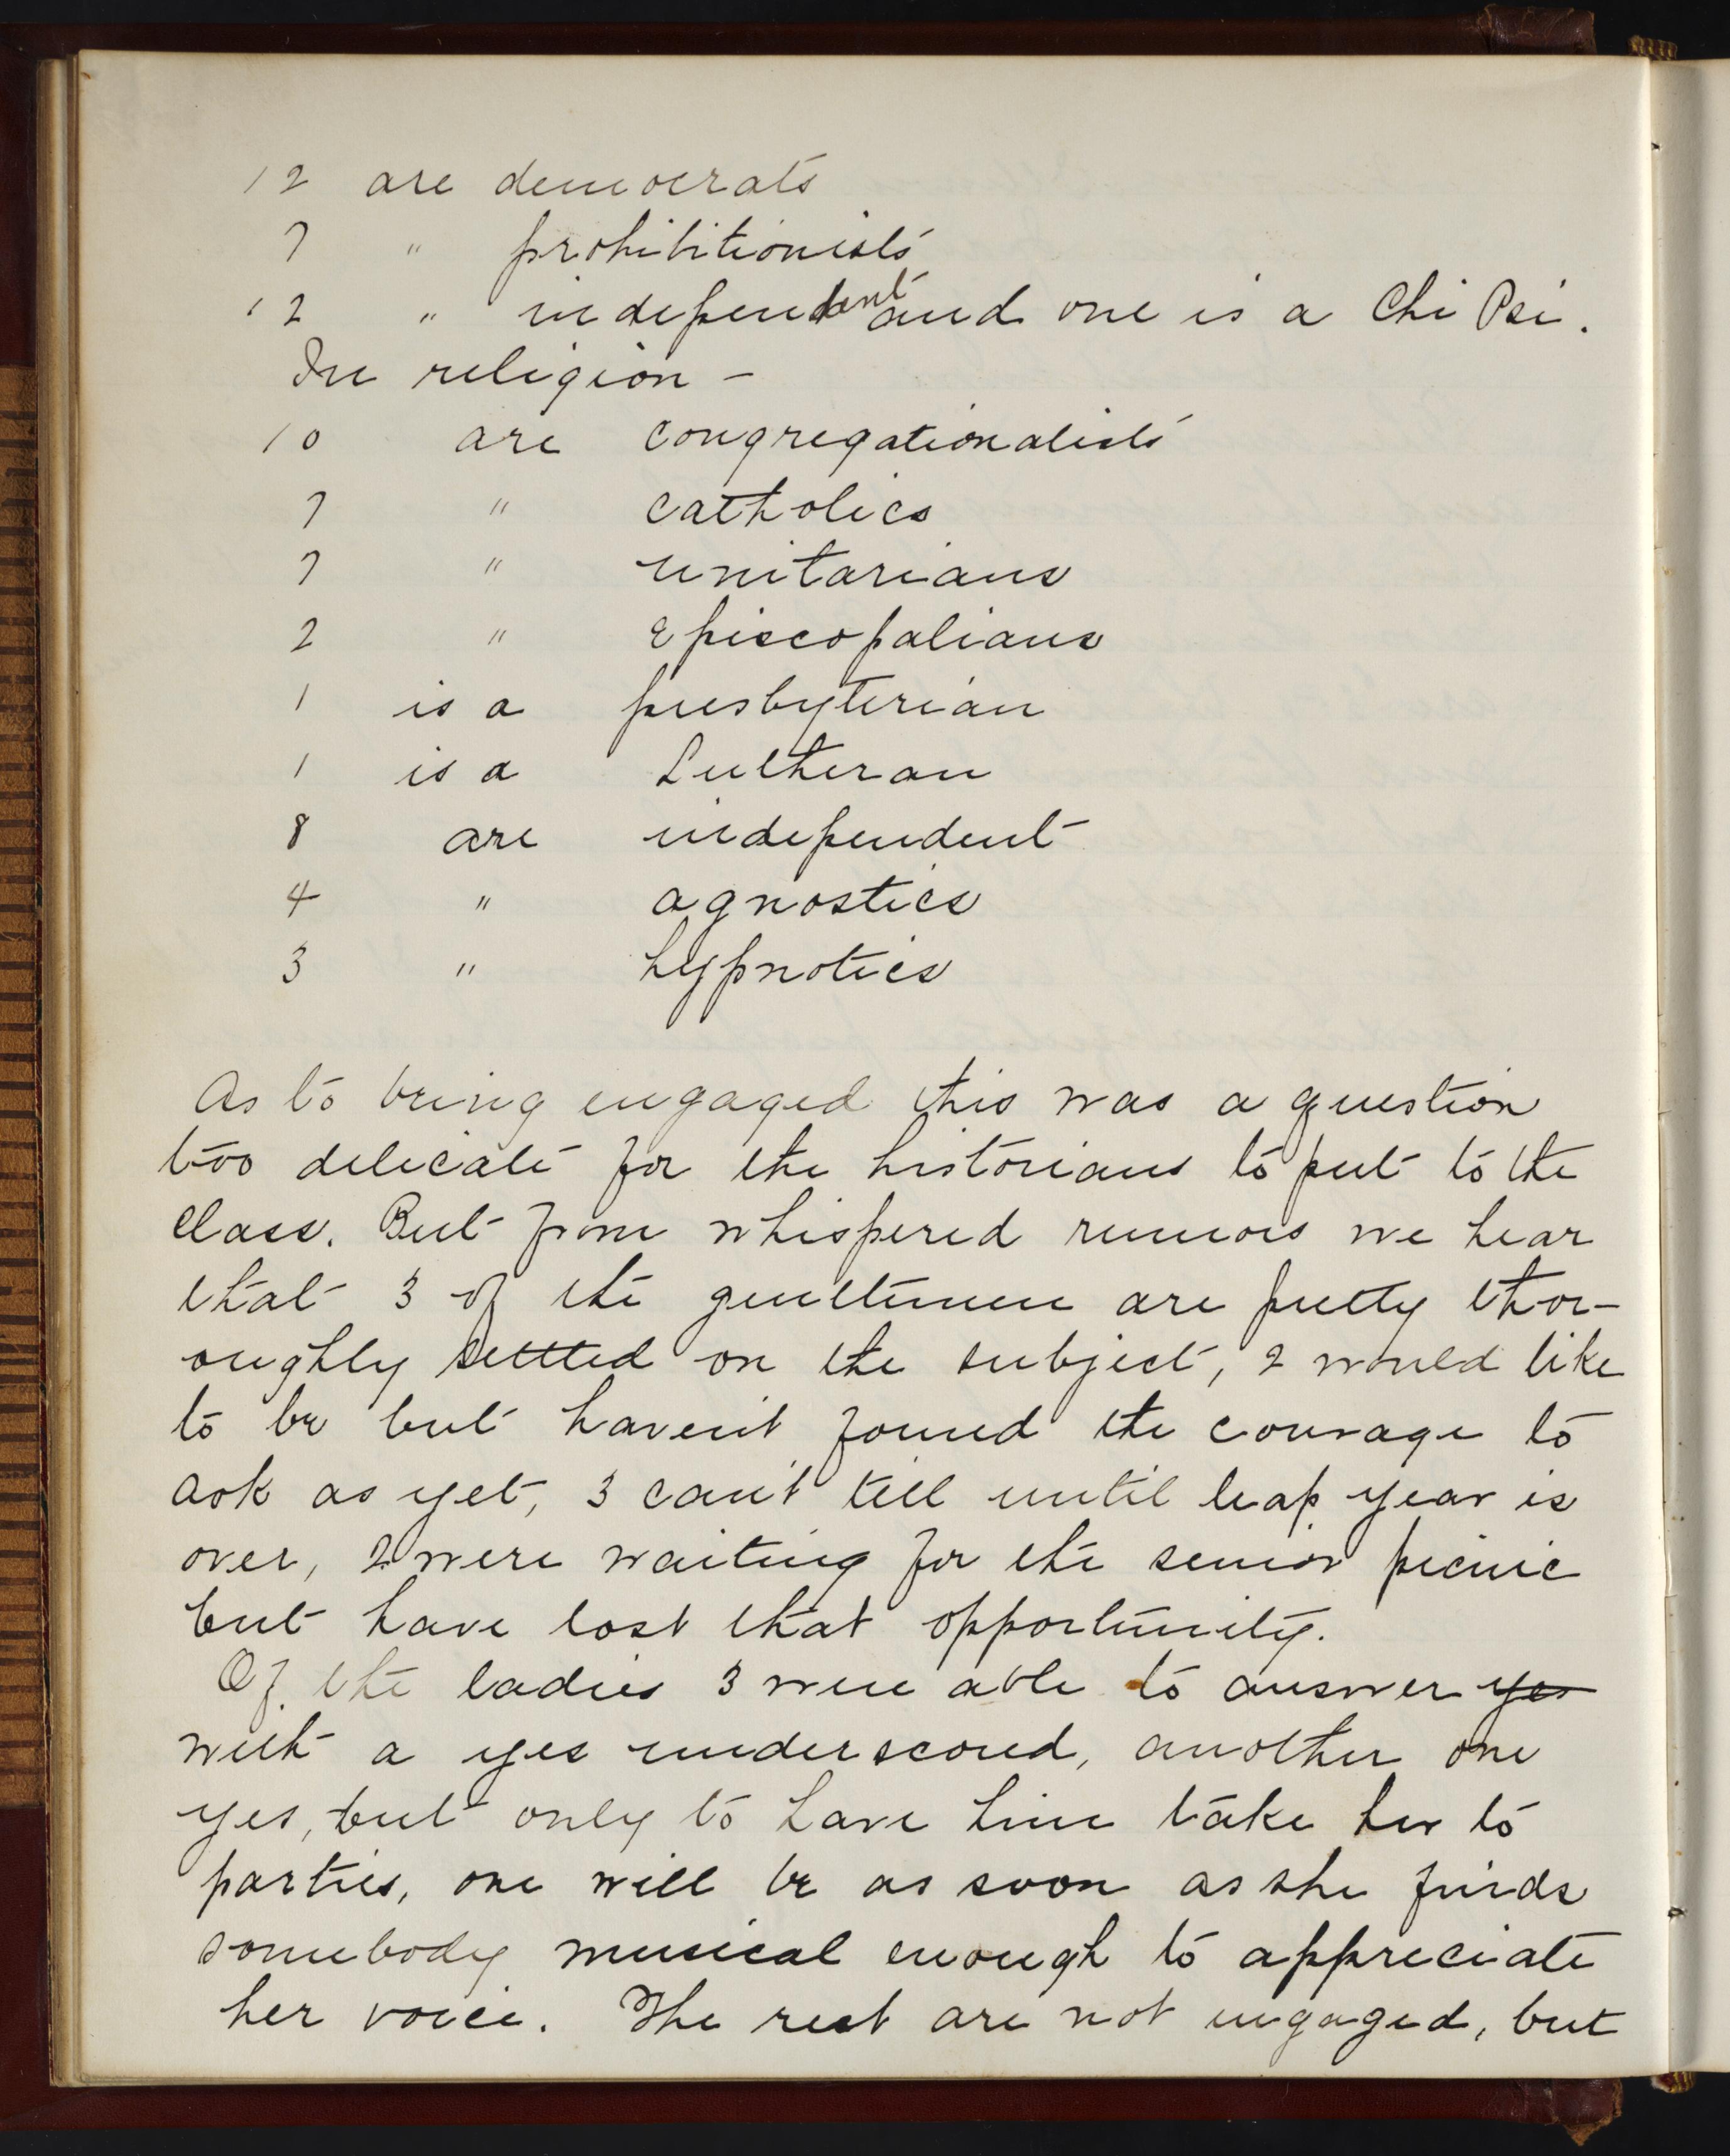 12 are democrats
7 " prohibitionists
12 " independent and one is a Chi Psi.
In religion -
10 are congregationalists
7 " catholics
7 " unitarians
2 " Episcopalians
1 is a presbyterian
1 is a Lutheran
8 are independent
4 " agnostics
3 " hypnotics
As to being engaged this was a question
too delicate for the historians to put to the
class. But from whispered rumors we hear
that 3 of the gentlemen are pretty thor-
oughly settled on the subject, 2 would like
to be but haven't found the courage to
ask as yet, 3 can't tell until leap year is
over, 2 were waiting for the senior picnic
but have lost that opportunity.
Of the ladies 3 were able to answer yes
with a yes underscored, another one
yes, but only to have him take her to
parties, one will be as soon as she finds
somebody musical enough to appreciate
her voice. The rest are not engaged, but